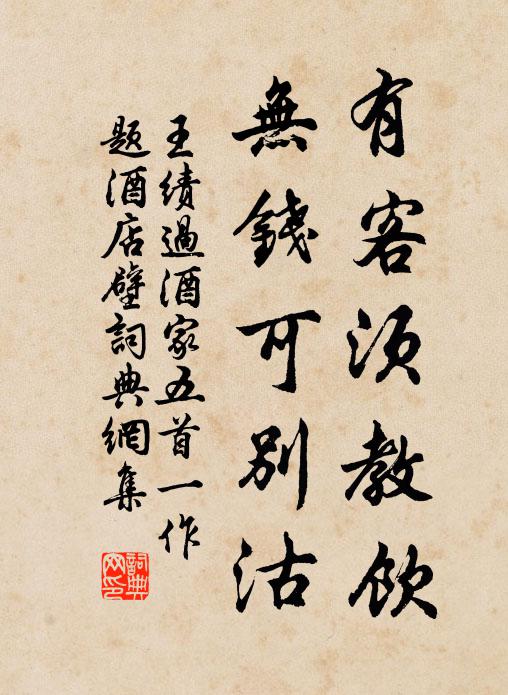 有客须教飲
無錢可別沽
王绩過酒家五首一作
题酒店壁詞典網集
詞典
网印